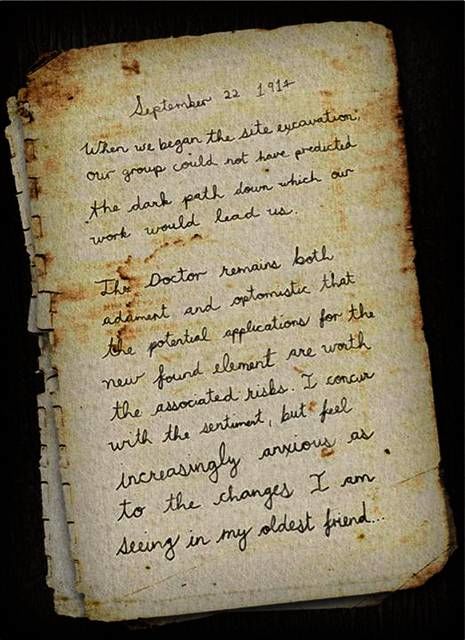 September 22 1914
When we began the site excavation,
our group could not have predicted
the dark path down which our
work would lead us.
The Doctor remains both
adament and optomistic that
the potential applications for the
new found element are worth
the associated risks. I concur
with the sentiment, but feel
increasingly anxious as
to the changes I am
seeing in my oldest friend...